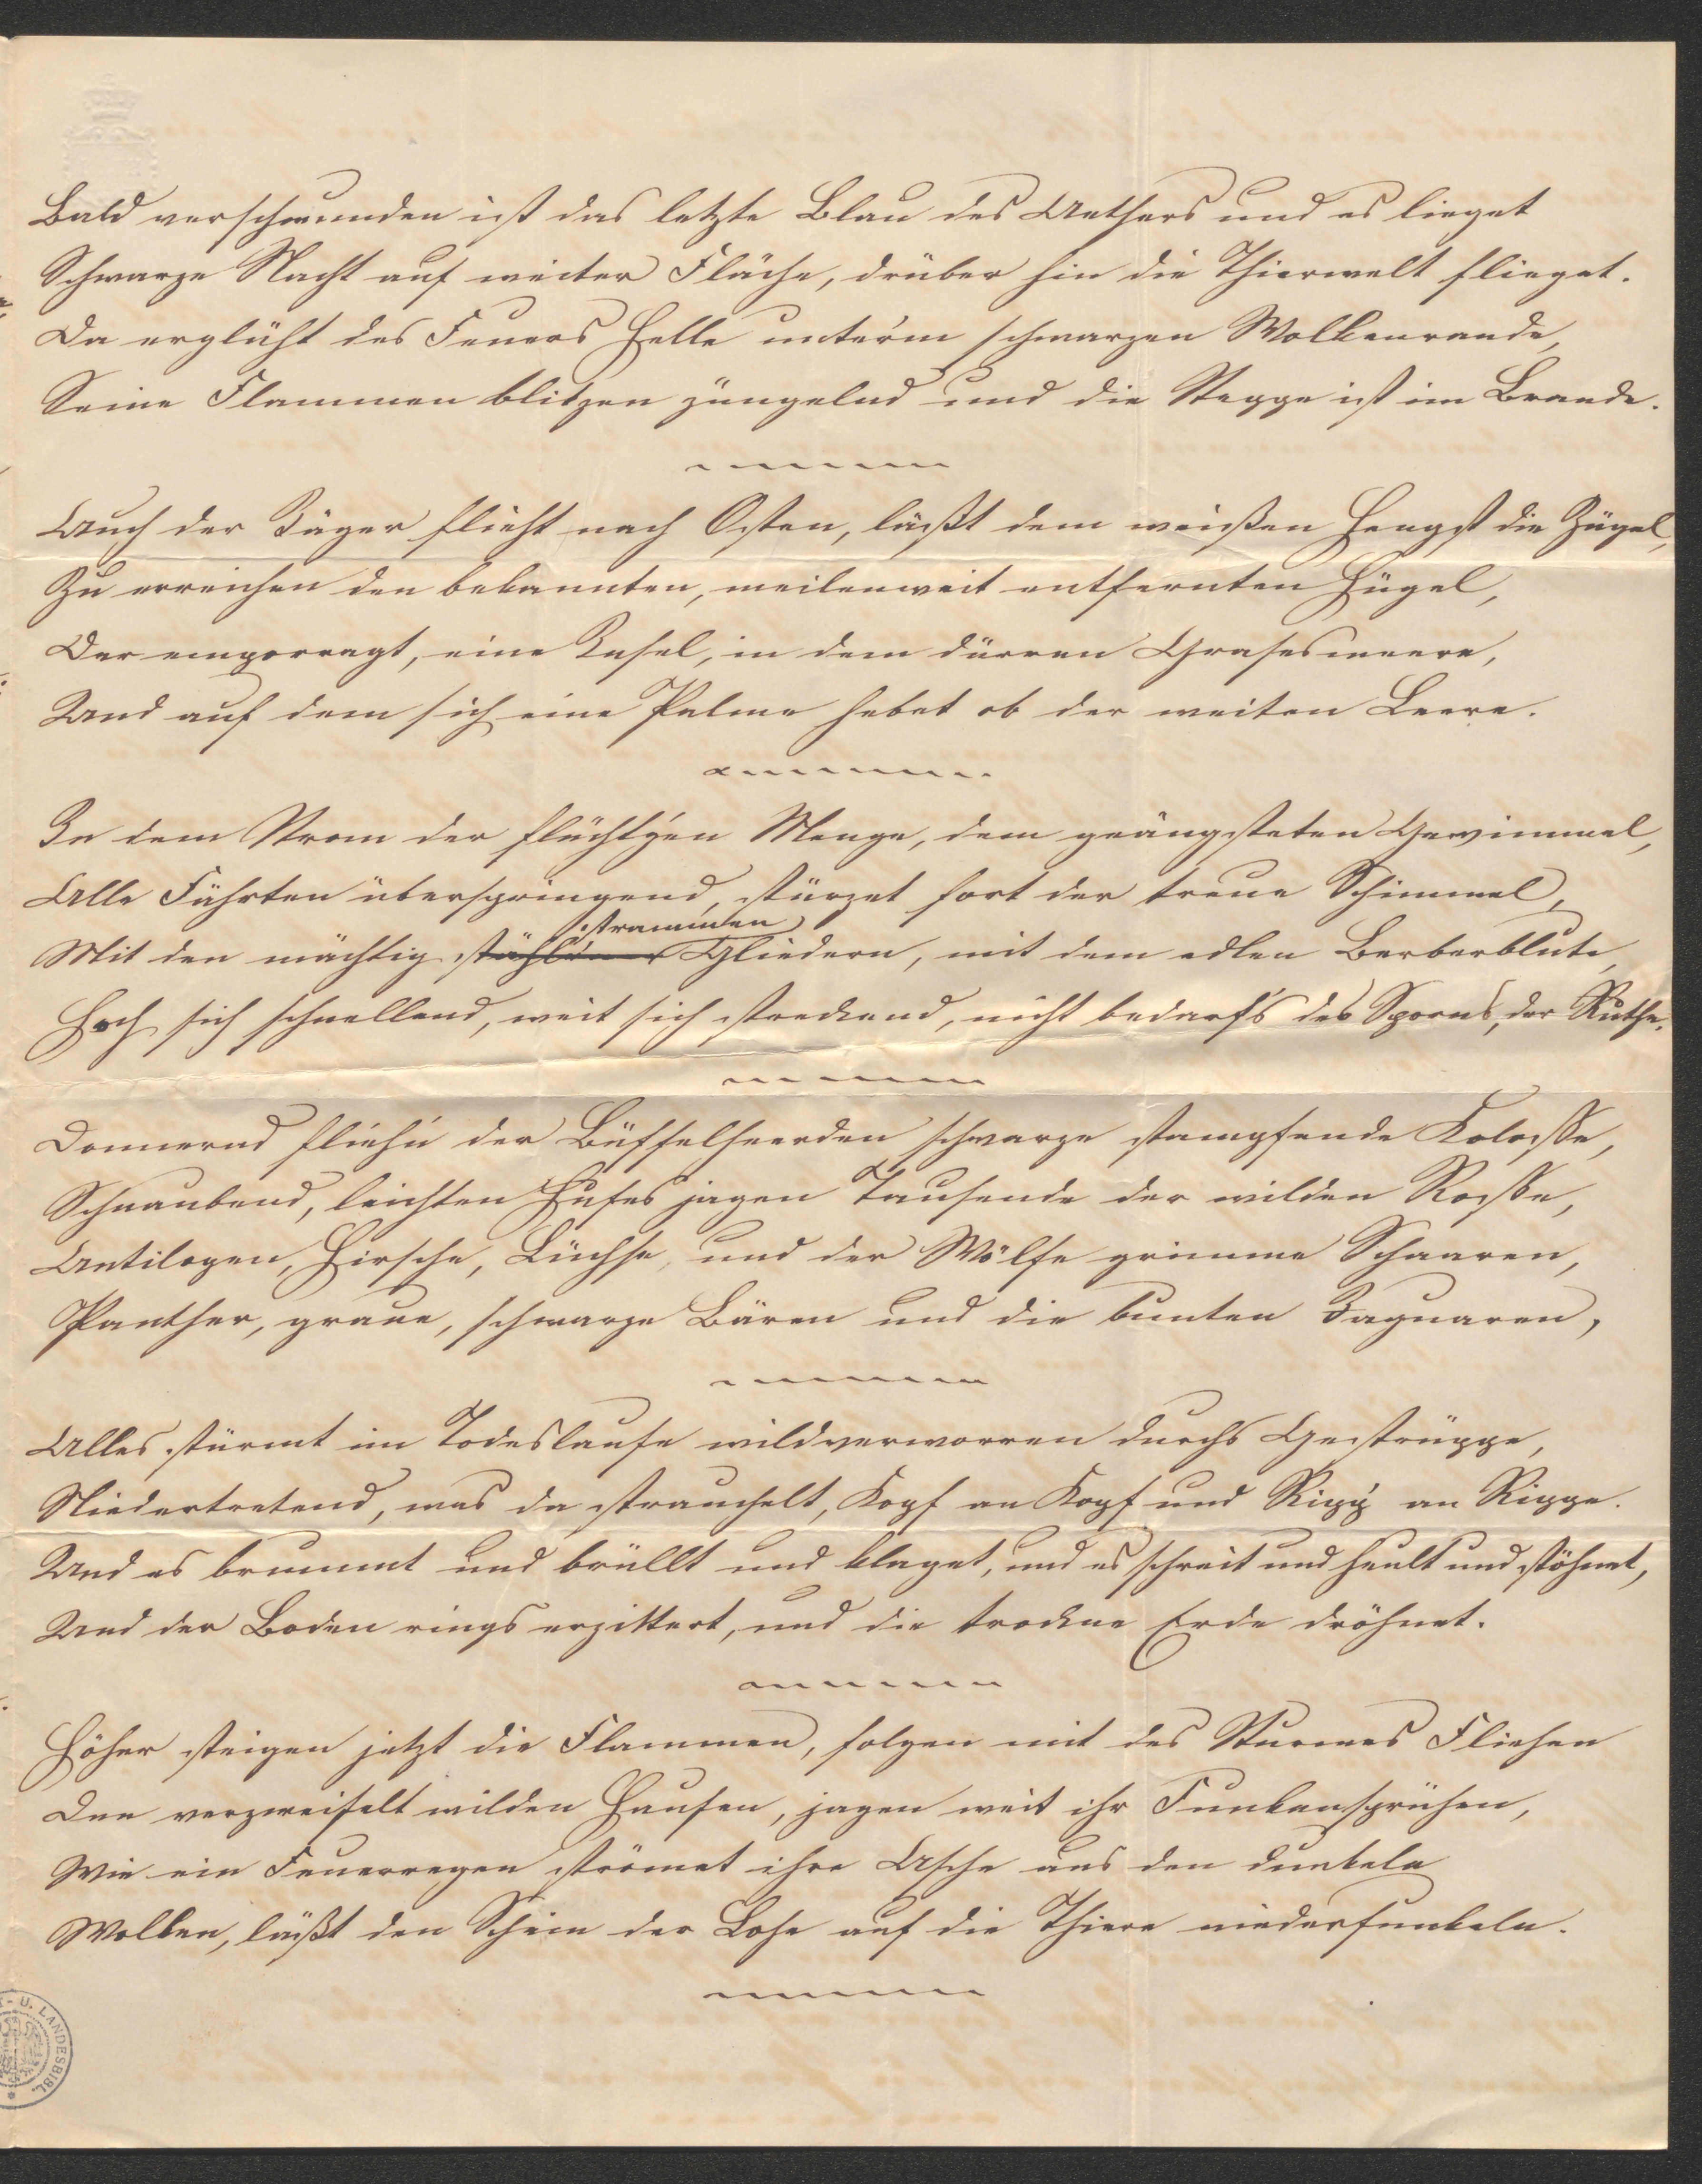 Bald verschwunden ist das letzte Blau des Aethers und es lieget
Schwarze Nacht auf weiter Fläche, drüber hin die Thierwelt flieget.
Da erglüht des Feuers Helle unter'm schwarzen Wolkenrande,
Seine Flammen blitzen züngelnd und die Steppe ist im Brande.
Auch der Jäger flieht nach Osten, läßt dem weißen Hengst die Zügel,
Zu erreichen den bekannten, meilenweit entfernten Hügel,
Der emporragt, eine Insel, in dem dürren Grasesmeere,
Und auf dem sich eine Palme hebet ob der weiten Leere.
In dem Strom der flücht'gen Menge, dem geängsteten Gewimmel,
Alle Fährten überspringend, stürzet fort der treue Schimmel,
strammen
Mit den mächtig Gliedern, mit dem edlen Berberblute,
Hoch sich schnellend, weit sich streckend, nicht bedarf's des Sporns, der Ruthe.
Donnernd flieh'n der Büffelheerden schwarze stampfende Kolosse,
Schnaubend, leichten Hufes jagen Tausende der wilden Rosse,
Antilopen, Hirsche, Lüchse, und der Wölfe grimme Schaaren,
Panther, graue, schwarze Bären und die bunten Jaguaren,
Alles stürmt im Todeslaufe wildverworren durchs Gestrüppe,
Niedertretend, was da strauchelt, Kopf an Kopf und Ripp' an Rippe.
Und es brummt und brüllt und klaget, und es schreit und heult und stöhnet,
Und der Boden rings erzittert, und die trockne Erde dröhnet.
Höher steigen jetzt die Flammen, folgen mit des Sturmes Fliehen
Den verzweifelt wilden Haufen, jagen weit ihr Funkensprühen,
Wie ein Feuerregen strömet ihre Asche aus den dunkeln
Wolken, läßt den Schein der Lohe auf die Thiere niederfunkeln.
U. LANDESBIBL.